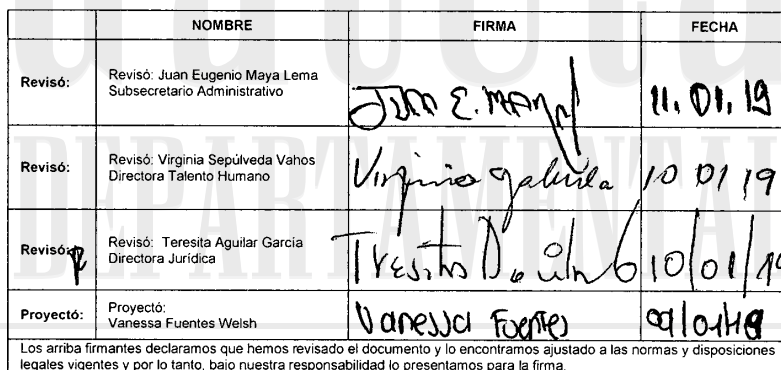 NOMBRE FIRMA FECHA
Revisó: Revisó: Juan Eugenio Maya Lema
Subsecretario Administrativo
Juan E. Maya 11. 01. 19
Revisó: Revisó: Virginia Sepúlveda Vahos
Directora Talento Humano
Virginia 10 01 19
Revisó: Revisó: Teresita Aguilar García
Directora Jurídica
10/01/19
Proyectó: Proyectó:
Vanessa Fuentes Welsh
Vanessa Fuentes 09/01/19
Los arriba firmantes declaramos que hemos revisado el documento y lo encontramos ajustado a las normas y disposiciones
legales vigentes y por lo tanto, bajo nuestra responsabilidad lo presentamos para la firma.
DEPARTAMENTAL